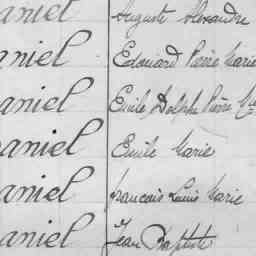 aniel Auguste Alexandre
aniel Edouard Pierre Marie
aniel Emile Dolphe Pierre
aniel Emile Marie
aniel francois Louis Marie
aniel Jean Baptiste